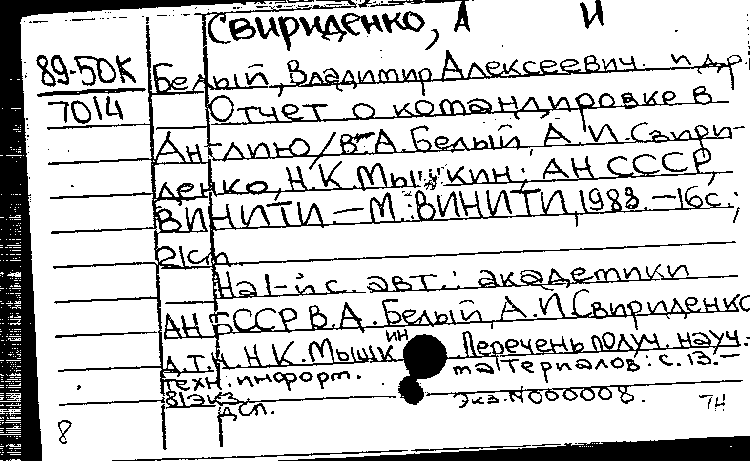 Свириденко, А И
89-50К
7014
Белый, Владимир Алексеевич. и др.
Отчет о командировке в
Англию/В.А.Белый, А.И.Свири-
денко, Н.К.Мышкин; АН СССР,
ВИНИТИ.—М.:ВИНИТИ, 1988.—16с.;
21см.
На 1-й с. авт.: академики
АН БССР В.А.Белый, А.И.Свириденко
д.т.н. Н.К.Мышкин Перечень получ. науч.-
техн. информ. материалов: с.13.—
81экз.
дсп. Экз.N000008.
7н
8